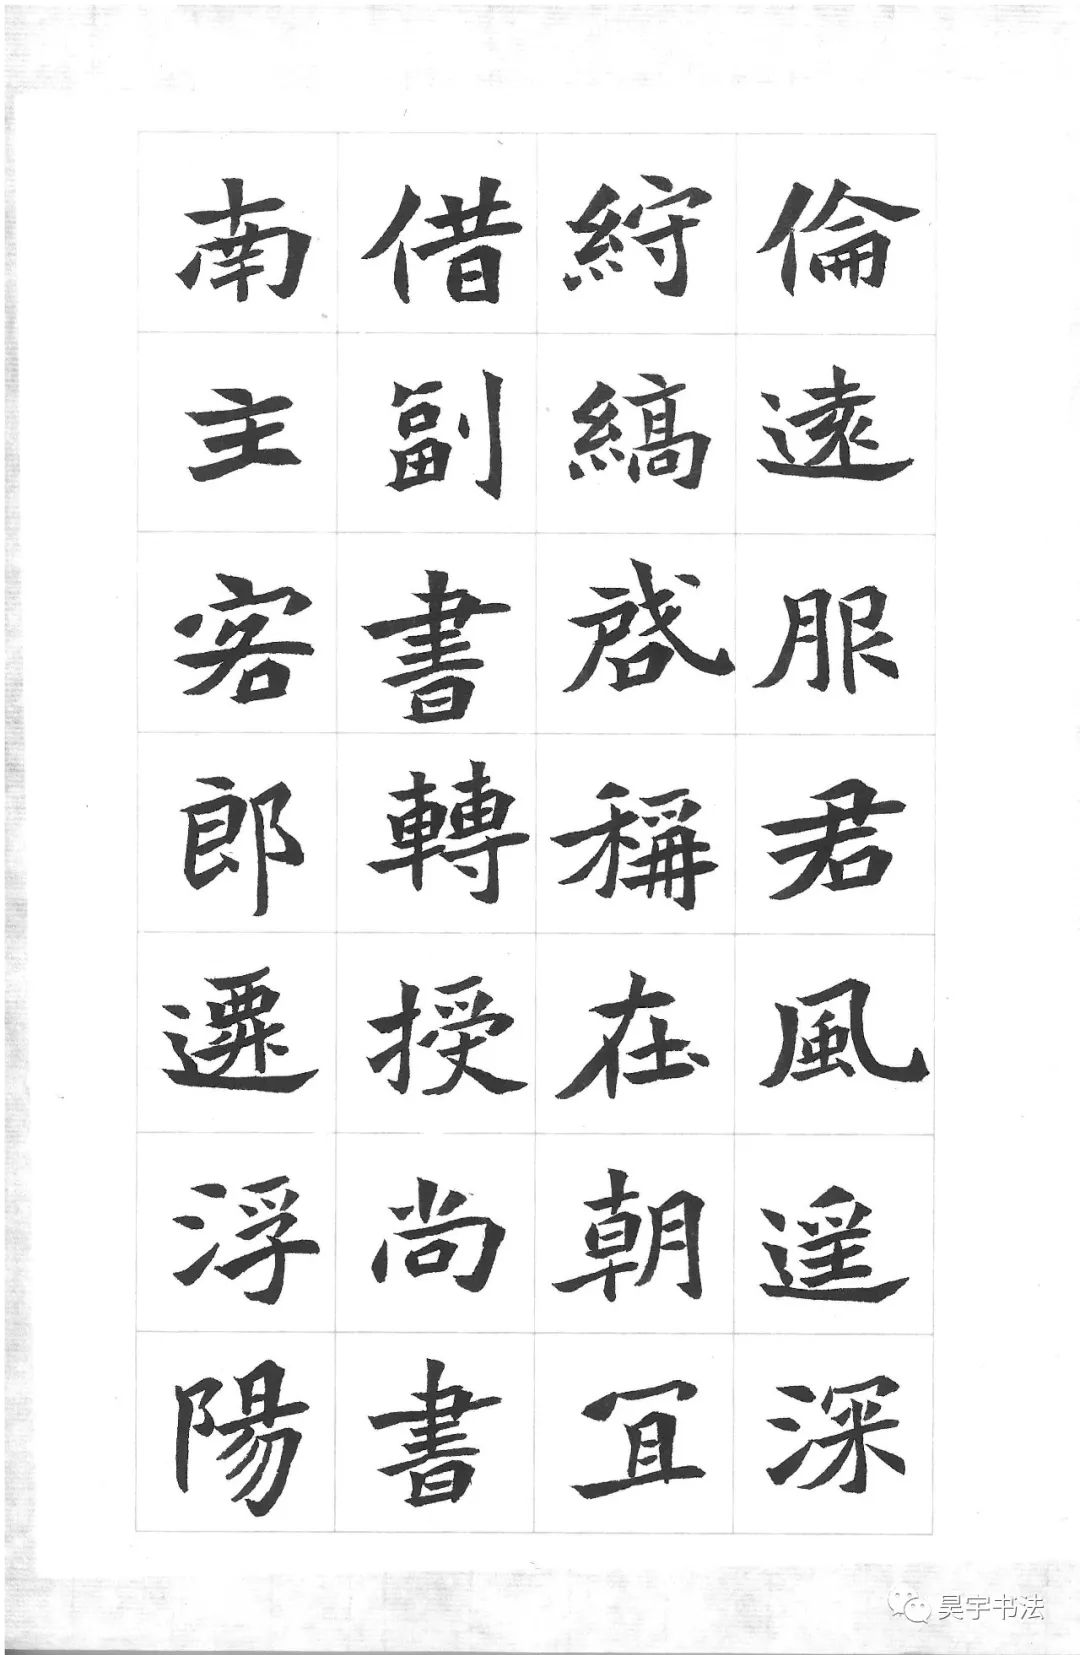 倫遠服君風遥深
紵縞啓稱在朝冝
借副書轉授尚書
南主客郎遷浮陽
昊宇书法